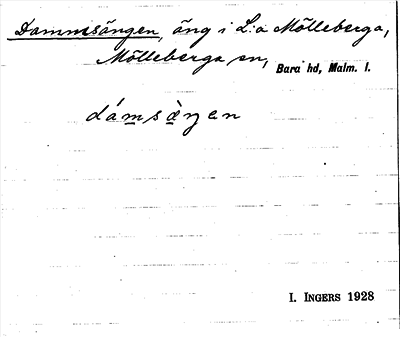 Dammsängen, äng i L:a Mölleberga,
Mölleberga sn, Bara hd, Malm. l.
dámsàŋen
I. INGERS 1928